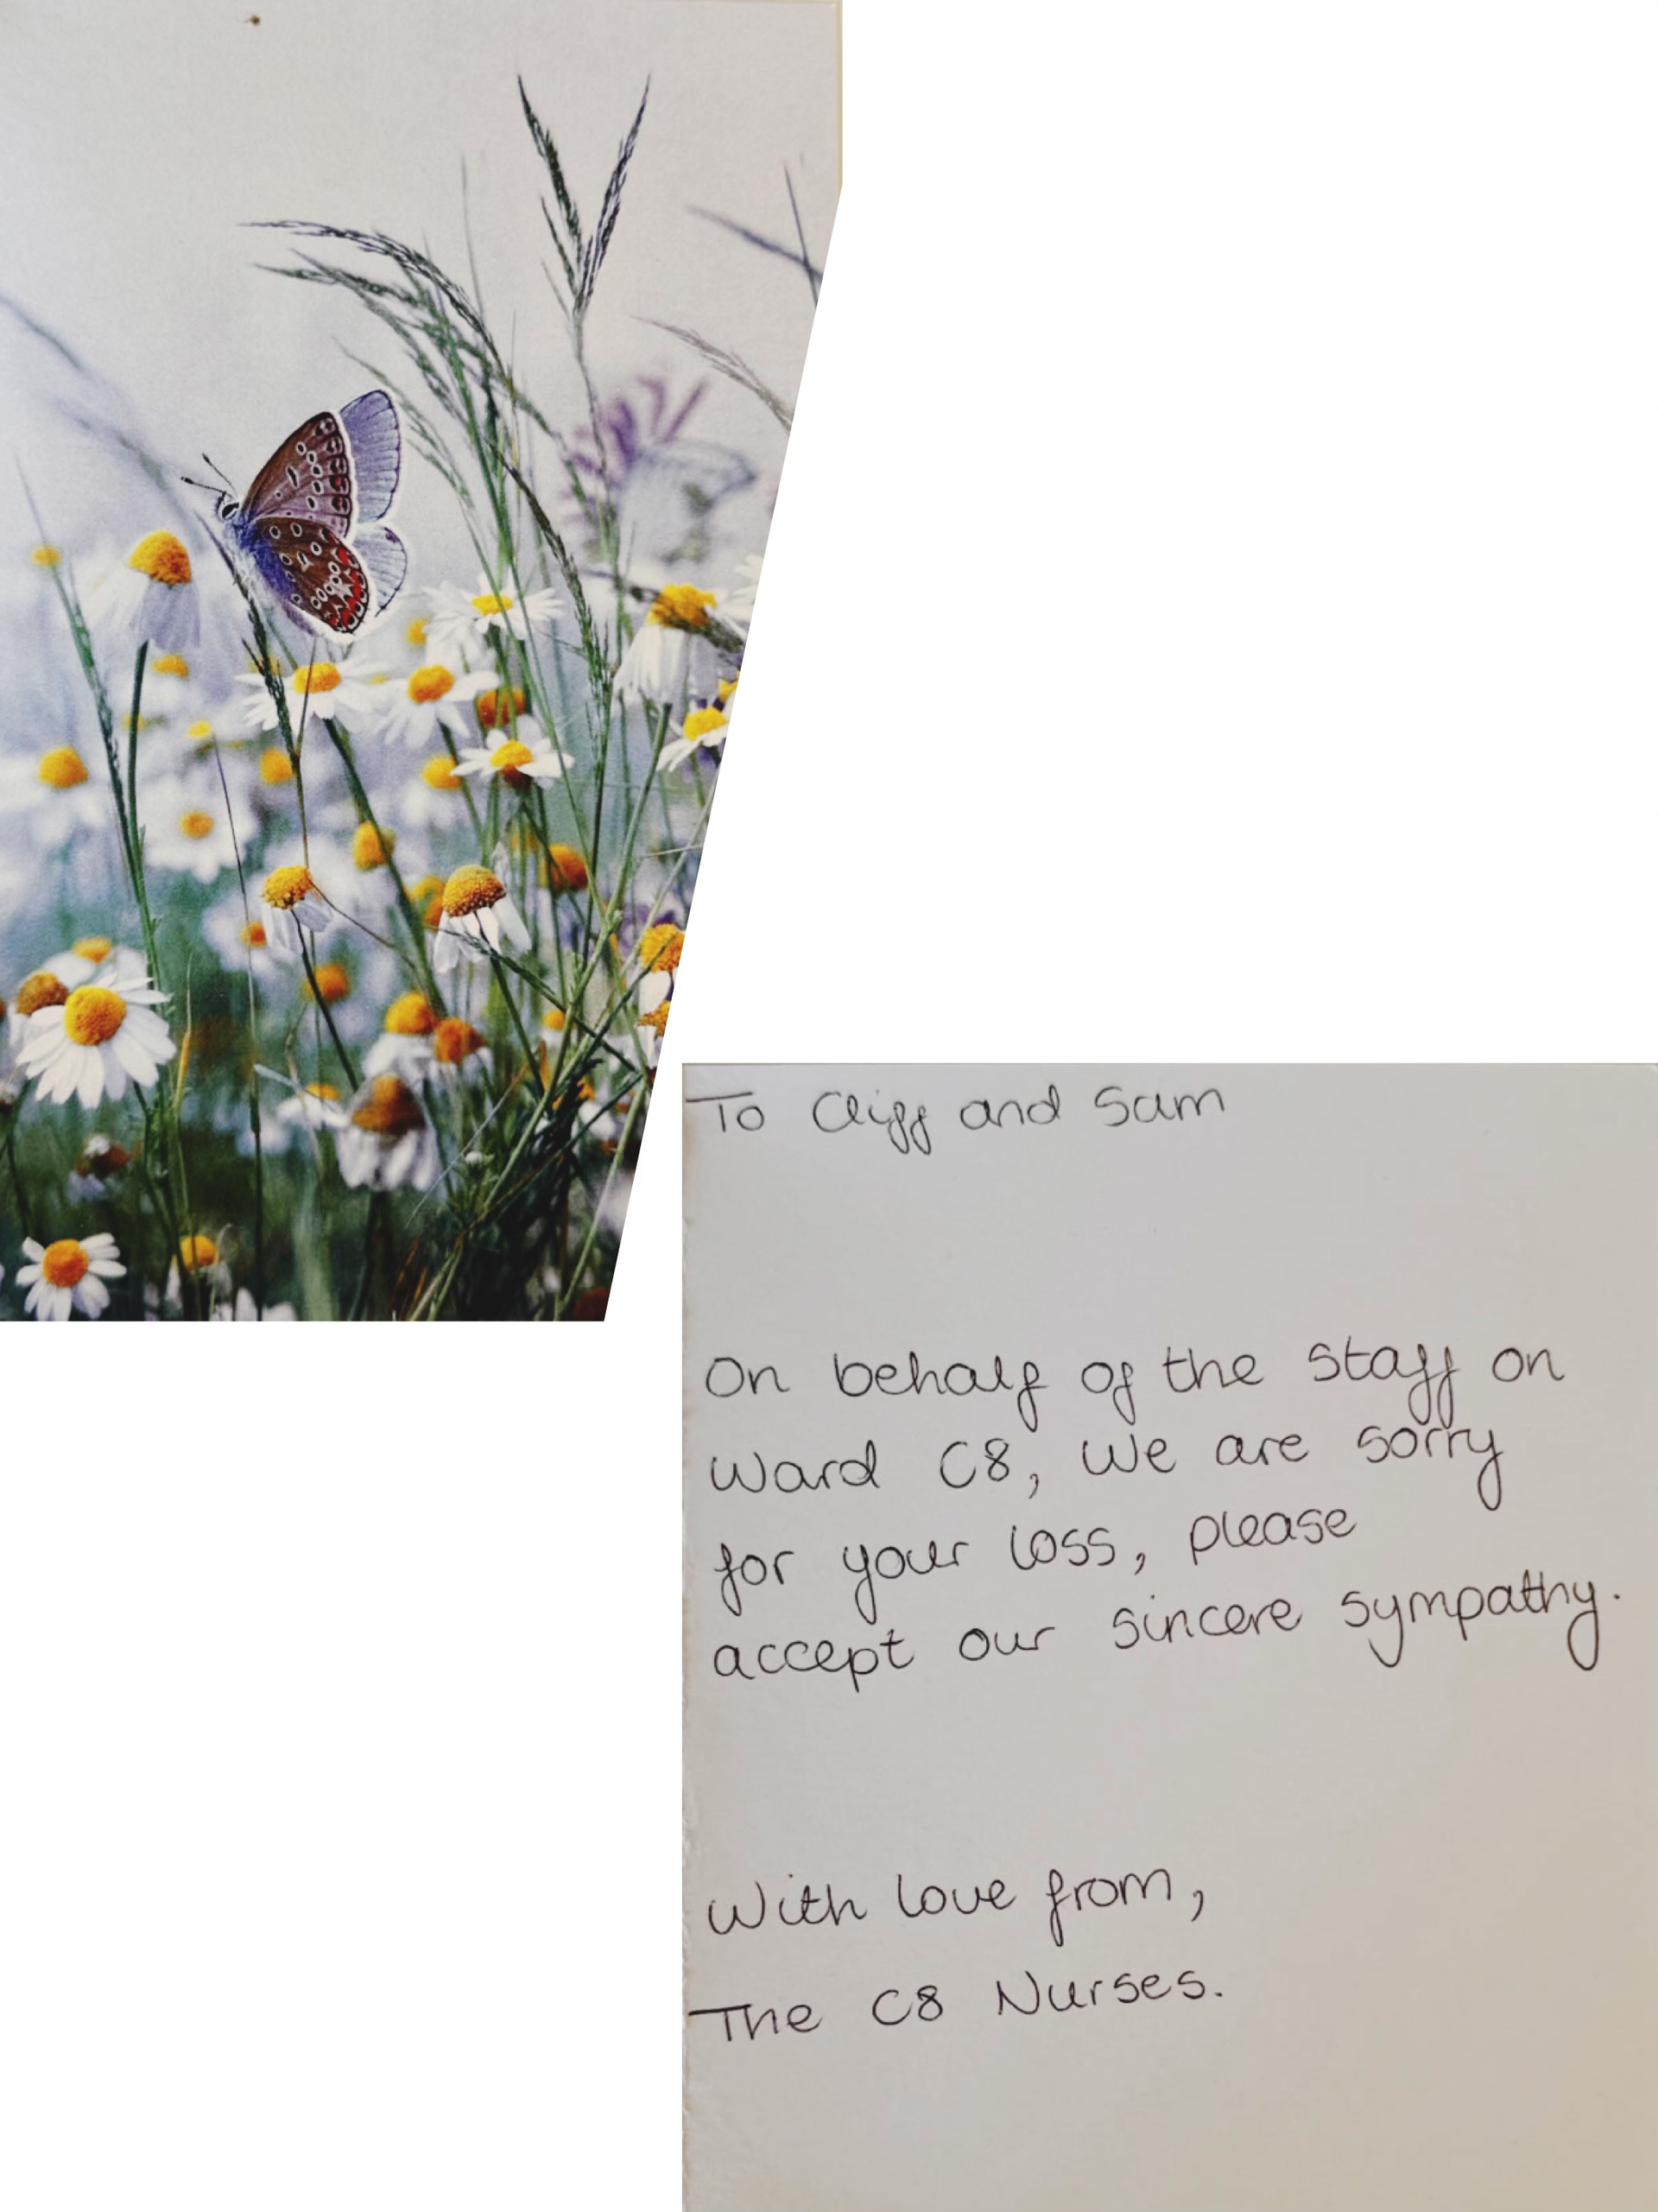 To Cliff and Sam
On behalf of the staff on
Ward C8, We are sorry
for your loss, please
accept our sincere sympathy.
With love from,
The C8 Nurses.